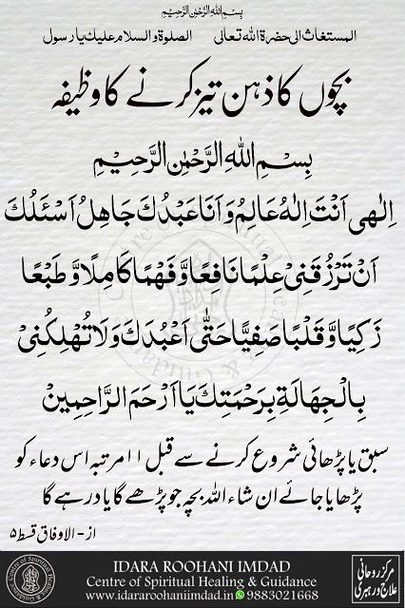 بِسْمِ اللهِ الرَّحْمٰنِ الرَّحِيْمِ
المستغاث الی حضرة اللہ تعالی الصلوة و السلام علیک یا رسول
بچوں کا ذہن تیز کرنے کا وظیفہ
بِسْمِ اللهِ الرَّحْمٰنِ الرَّحِيْمِ
اِلٰهِی اَنْتَ اِلٰهُ عَالِمُ وَ اَنَا عَبْدُكَ جَاهِلُ اَسْئَلُكَ
اَنْ تَرْزُقَنِیْ عِلْمًا نَافِعًا وَّ فَهْمًا كَامِلًا وَّ طَبْعًا
زَكِیًّا وَّ قَلْبًا صَفِیًّا حَتّٰی اَعْبُدَكَ وَلَا تُهْلِكُنِیْ
بِالْجِهَالَةِ بِرَحْمَتِكَ یَا اَرْحَمَ الرَّاحِمِیْنْ
سبق یا پڑھائی شروع کرنے سے قبل ۱۱ مرتبہ اس دعاء کو
پڑھایا جائے ان شاء اللہ بچہ جو پڑھے گا یاد رہے گا
از-الاوفاق قسط ۵
IDARA ROOHANI IMDAD
Centre of Spiritual Healing & Guidance
www.idararoohaniimdad.in 9883021668
مرکز روحانی
علاج و رہبری